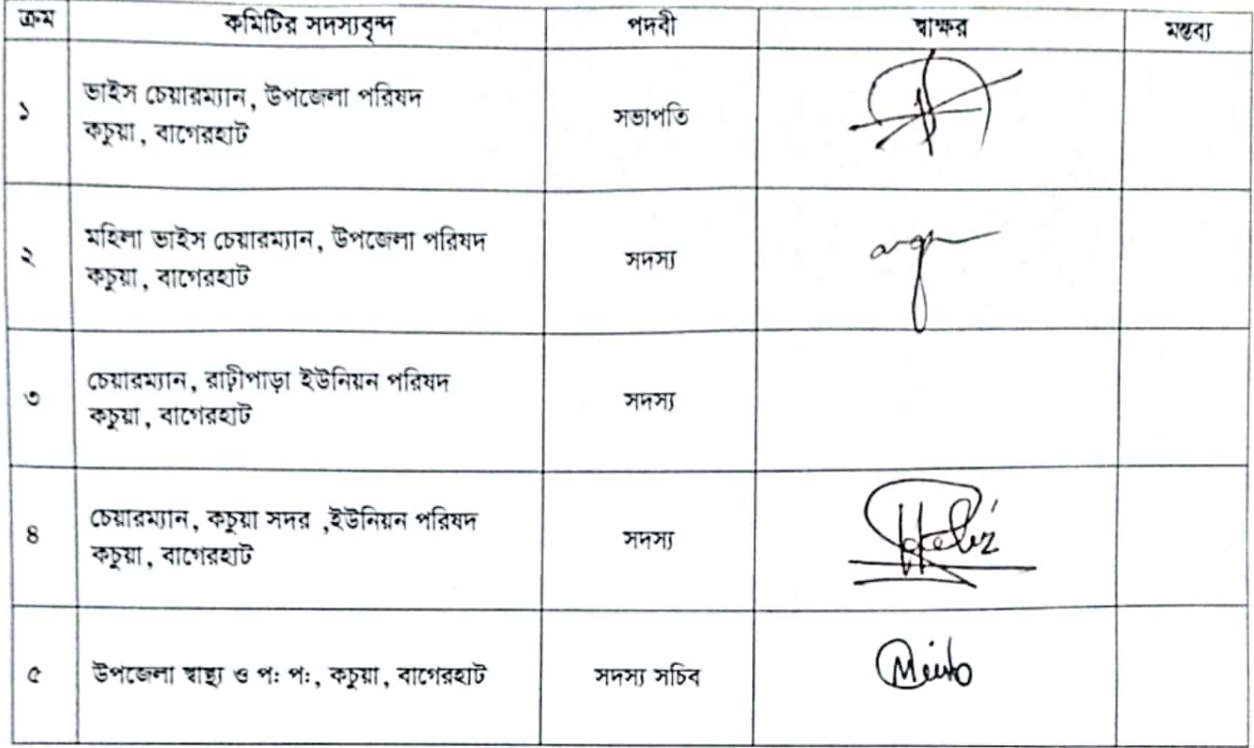 ক্রম কমিটির সদস্যবৃন্দ পদবী স্বাক্ষর মন্তব্য
১ ভাইস চেয়ারম্যান, উপজেলা পরিষদ
কচুয়া, বাগেরহাট সভাপতি
২ মহিলা ভাইস চেয়ারম্যান, উপজেলা পরিষদ
কচুয়া, বাগেরহাট সদস্য
৩ চেয়ারম্যান, রাঢ়ীপাড়া ইউনিয়ন পরিষদ
কচুয়া, বাগেরহাট সদস্য
৪ চেয়ারম্যান, কচুয়া সদর ,ইউনিয়ন পরিষদ
কচুয়া, বাগেরহাট সদস্য
৫ উপজেলা স্বাস্থ্য ও প: প:, কচুয়া, বাগেরহাট সদস্য সচিব